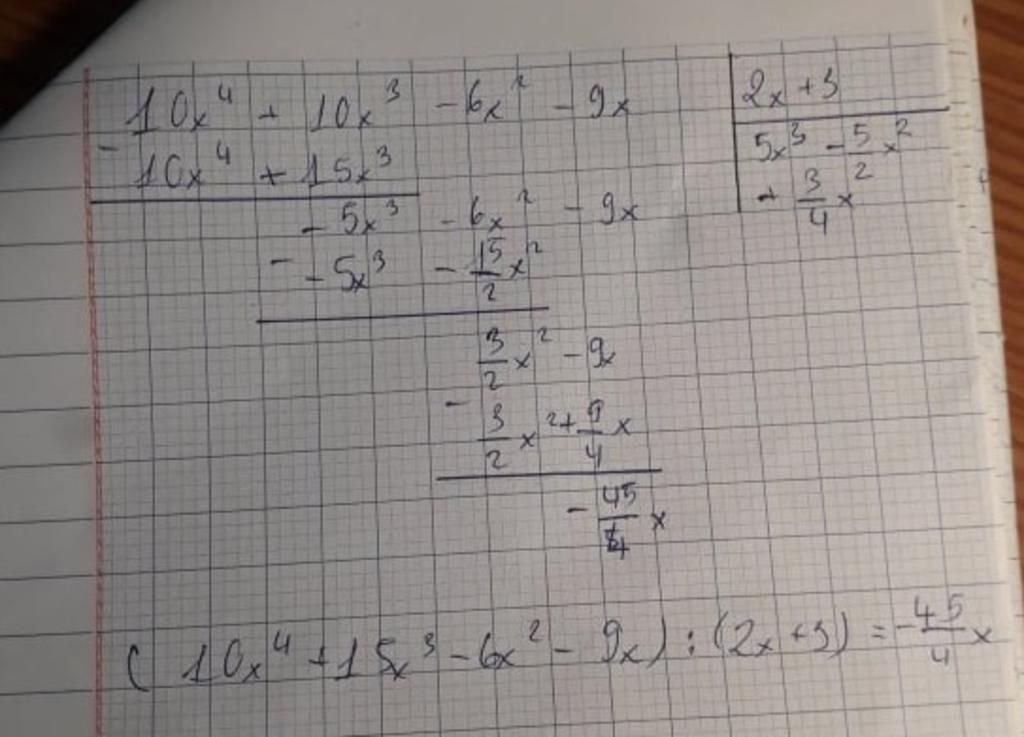 10x⁴ + 10x³ - 6x² - 9x | 2x + 3
- 10x⁴ + 15x³ | 5x³ - 5/2 x²
- 5x³ - 6x² - 9x | + 3/4 x²
- - 5x³ - 15/2 x²
3/2 x² - 9x
- 3/2 x² + 9/4 x
- 45/4 x
( 10x⁴ + 15x³ - 6x² - 9x ) : (2x + 3) = - 45/4 x